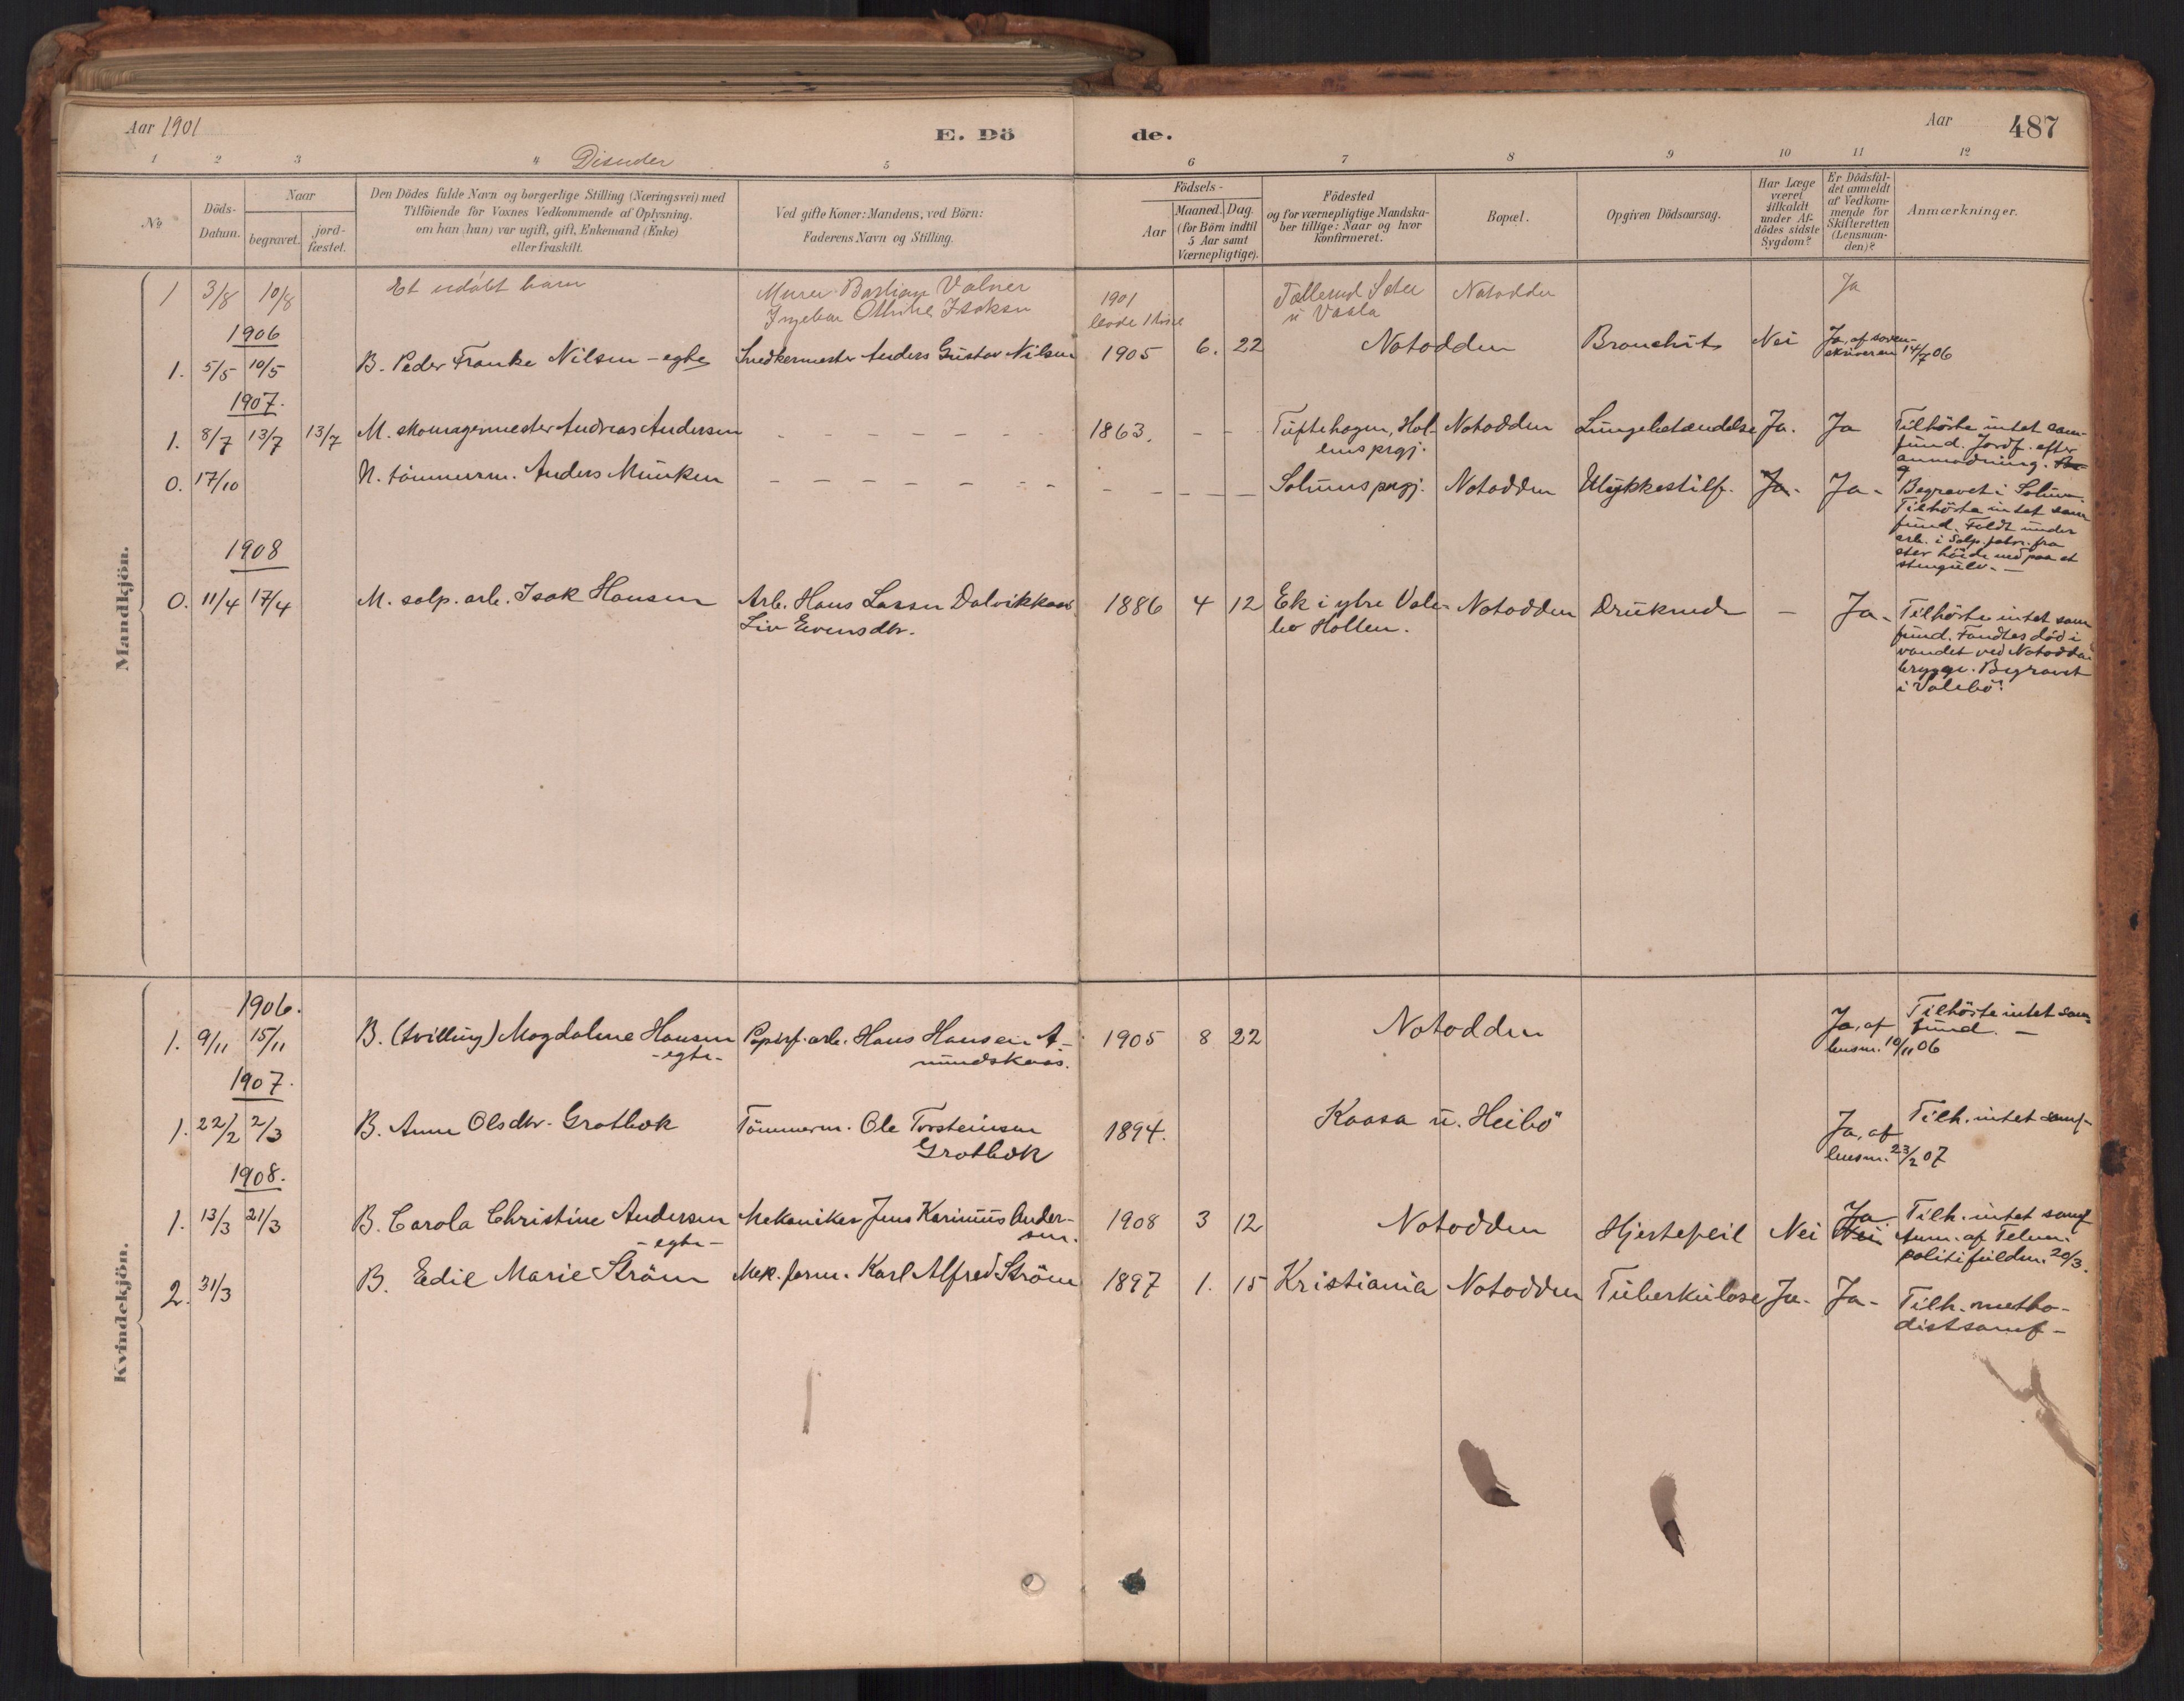 Aar 1901
E. Dö
de.
Aar
487
1 2 3 4 Disender 5 6 7 8 9 10 11 12
№
Döds-
Datum.
Naar
begravet.
jord-
fæstet.
Den Dödes fulde Navn og borgerlige Stilling (Næringsvei) med
Tilföiende for Voxnes Vedkommende af Oplysning.
om han (hun) var ugift, gift, Enkemand (Enke)
eller fraskilt.
Ved gifte Koner: Mandens, ved Börn:
Faderens Navn og Stilling.
Födsels-
Aar
Maaned. Dag.
(for Börn indtil
5 Aar samt
Værnepligtige).
Födested
og for værnepligtige Mandska-
ber tillige: Naar og hvor
konfirmeret.
Bopæl.
Opgiven Dödsaarsag.
Har Læge
været
tilkaldt
under Af-
dödes sidste
Sygdom?
Er Dödsfal-
det anmeldt
af Vedkom-
mende for
Skifteretten
(Lensman-
den)?
Anmærkninger.
Mandkjön.
1 3/8 10/8 Et udöbt barn Murer Bastian Valner 1901 Notodden Ja
Othilie Isaksen
1906
1. 5/5 10/5 B. Peder Franke Nilsen - egte Snedkermester Anders Gustav Nilsen 1905 6. 22 Notodden Bronchit Nei Ja, af soren-
skriveren 14/7 06
1907.
1. 8/7 13/7 13/7 M. skomagermester Andreas Andersen - - - - - - - 1863. - - Tuftehagen, Hol- Notodden Lungebetændelse Ja. Ja Tilhörte intet sam-
lens prgj. fund. Jordf. efter
anmodning.
0. 17/10 N. tömmerm. Anders Munken - - - - - - - - - - - Solums prgj. Notodden Ulykkestilf. Ja. Ja - Begravet i Solum.
Tilhörte intet sam
fund. Faldt under
arb. i Salp. fabr. fra
stor höide ned paa et
stengulv. -
1908
0. 11/4 17/4 M. salp. arb. Isak Hansen Arb. Hans Lassen Dalvikkaas 1886 4 12 Ek i ytre Vale- Notodden Druknede - Ja - Tilhörte intet sam
Liv Evensdtr. bö Hollen. fund. Fandtes död i
vandet ved Notodden
brygge. Begravet
i Valebö.
Kvindekjön.
1906.
1. 9/11 15/11 B. (tvilling) Magdalene Hansen Papirf. arb. Hans Hansen A- 1905 8 22 Notodden Ja, af Tilhörte intet sam
- egte - mundskaas. lensm. 10/11 06 fund. -
1907.
1. 22/2 2/3 B. Anne Olsdtr. Grotbæk Tömmerm. Ole Torsteinsen 1894. Kaasa u. Heibö Ja, af Tilh. intet samf-
Grotbæk lensm. 23/2 07
1908.
1. 13/3 21/3 B. Carola Christine Andersen Mekaniker Jens Karinius Ander- 1908 3 12 Notodden Hjertefeil Nei Ja Nei Tilh. intet samf
- egte - sen. Anm. af Telem.
politifuldm. 20/3.
2. 31/3 B. Edil Marie Ström Mek. form. Karl Alfred Ström 1897 1. 15 Kristiania Notodden Tuberkulose Ja - Ja - Tilh. metho-
distsamf -